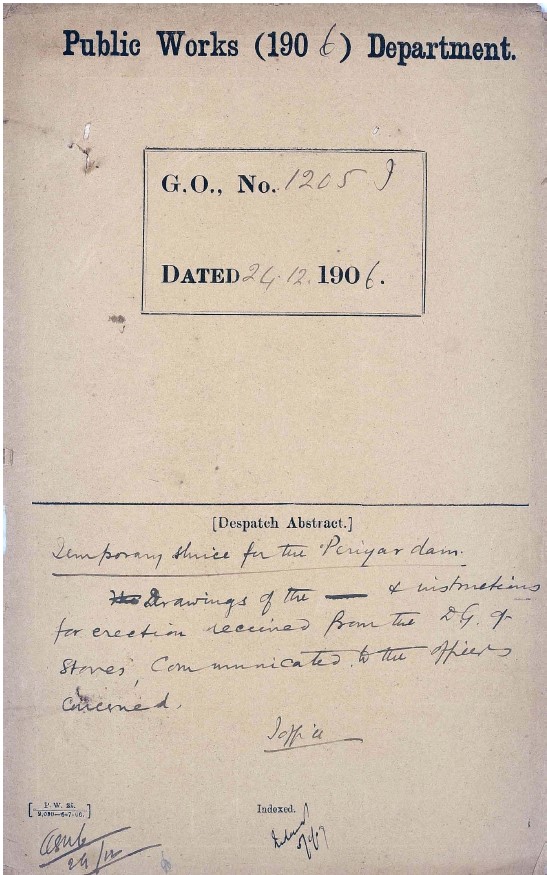 Public Works (1906) Department.
G.O., No. 1205 I
DATED 24.12.1906.
[Despatch Abstract.]
Temporary sluice for the Periyar dam.
Drawings of the — & instructions
for erection received from the D.G. of
Stores, Communicated to the officers
concerned.
[P. W. 25.
Indexed.
24/12